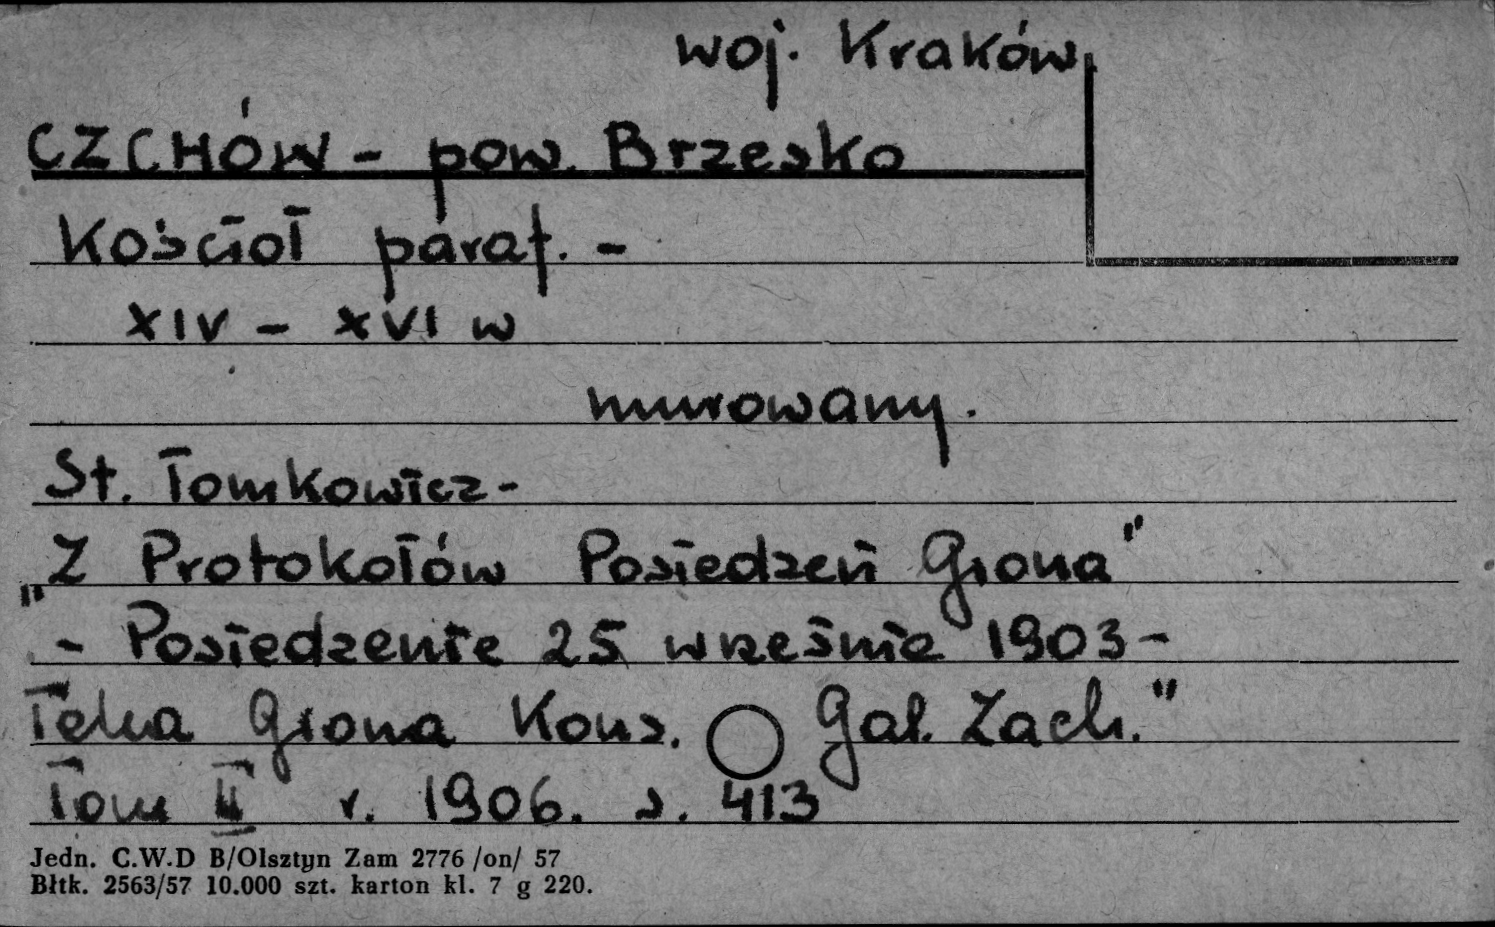 woj. Kraków
CZCHÓW - pow. Brzesko
Kościoł paraf. -
XIV - XVI w
murowany.
St. Tomkowicz -
"Z Protokołów Posiedzeń Grona"
- Posiedzenie 25 wrześnie 1903 -
Teka Grona Kons. Gal. Zach."
Tom II r. 1906. s. 413
Jedn. C.W.D B/Olsztyn Zam 2776 /on/ 57
Błtk. 2563/57 10.000 szt. karton kl. 7 g 220.